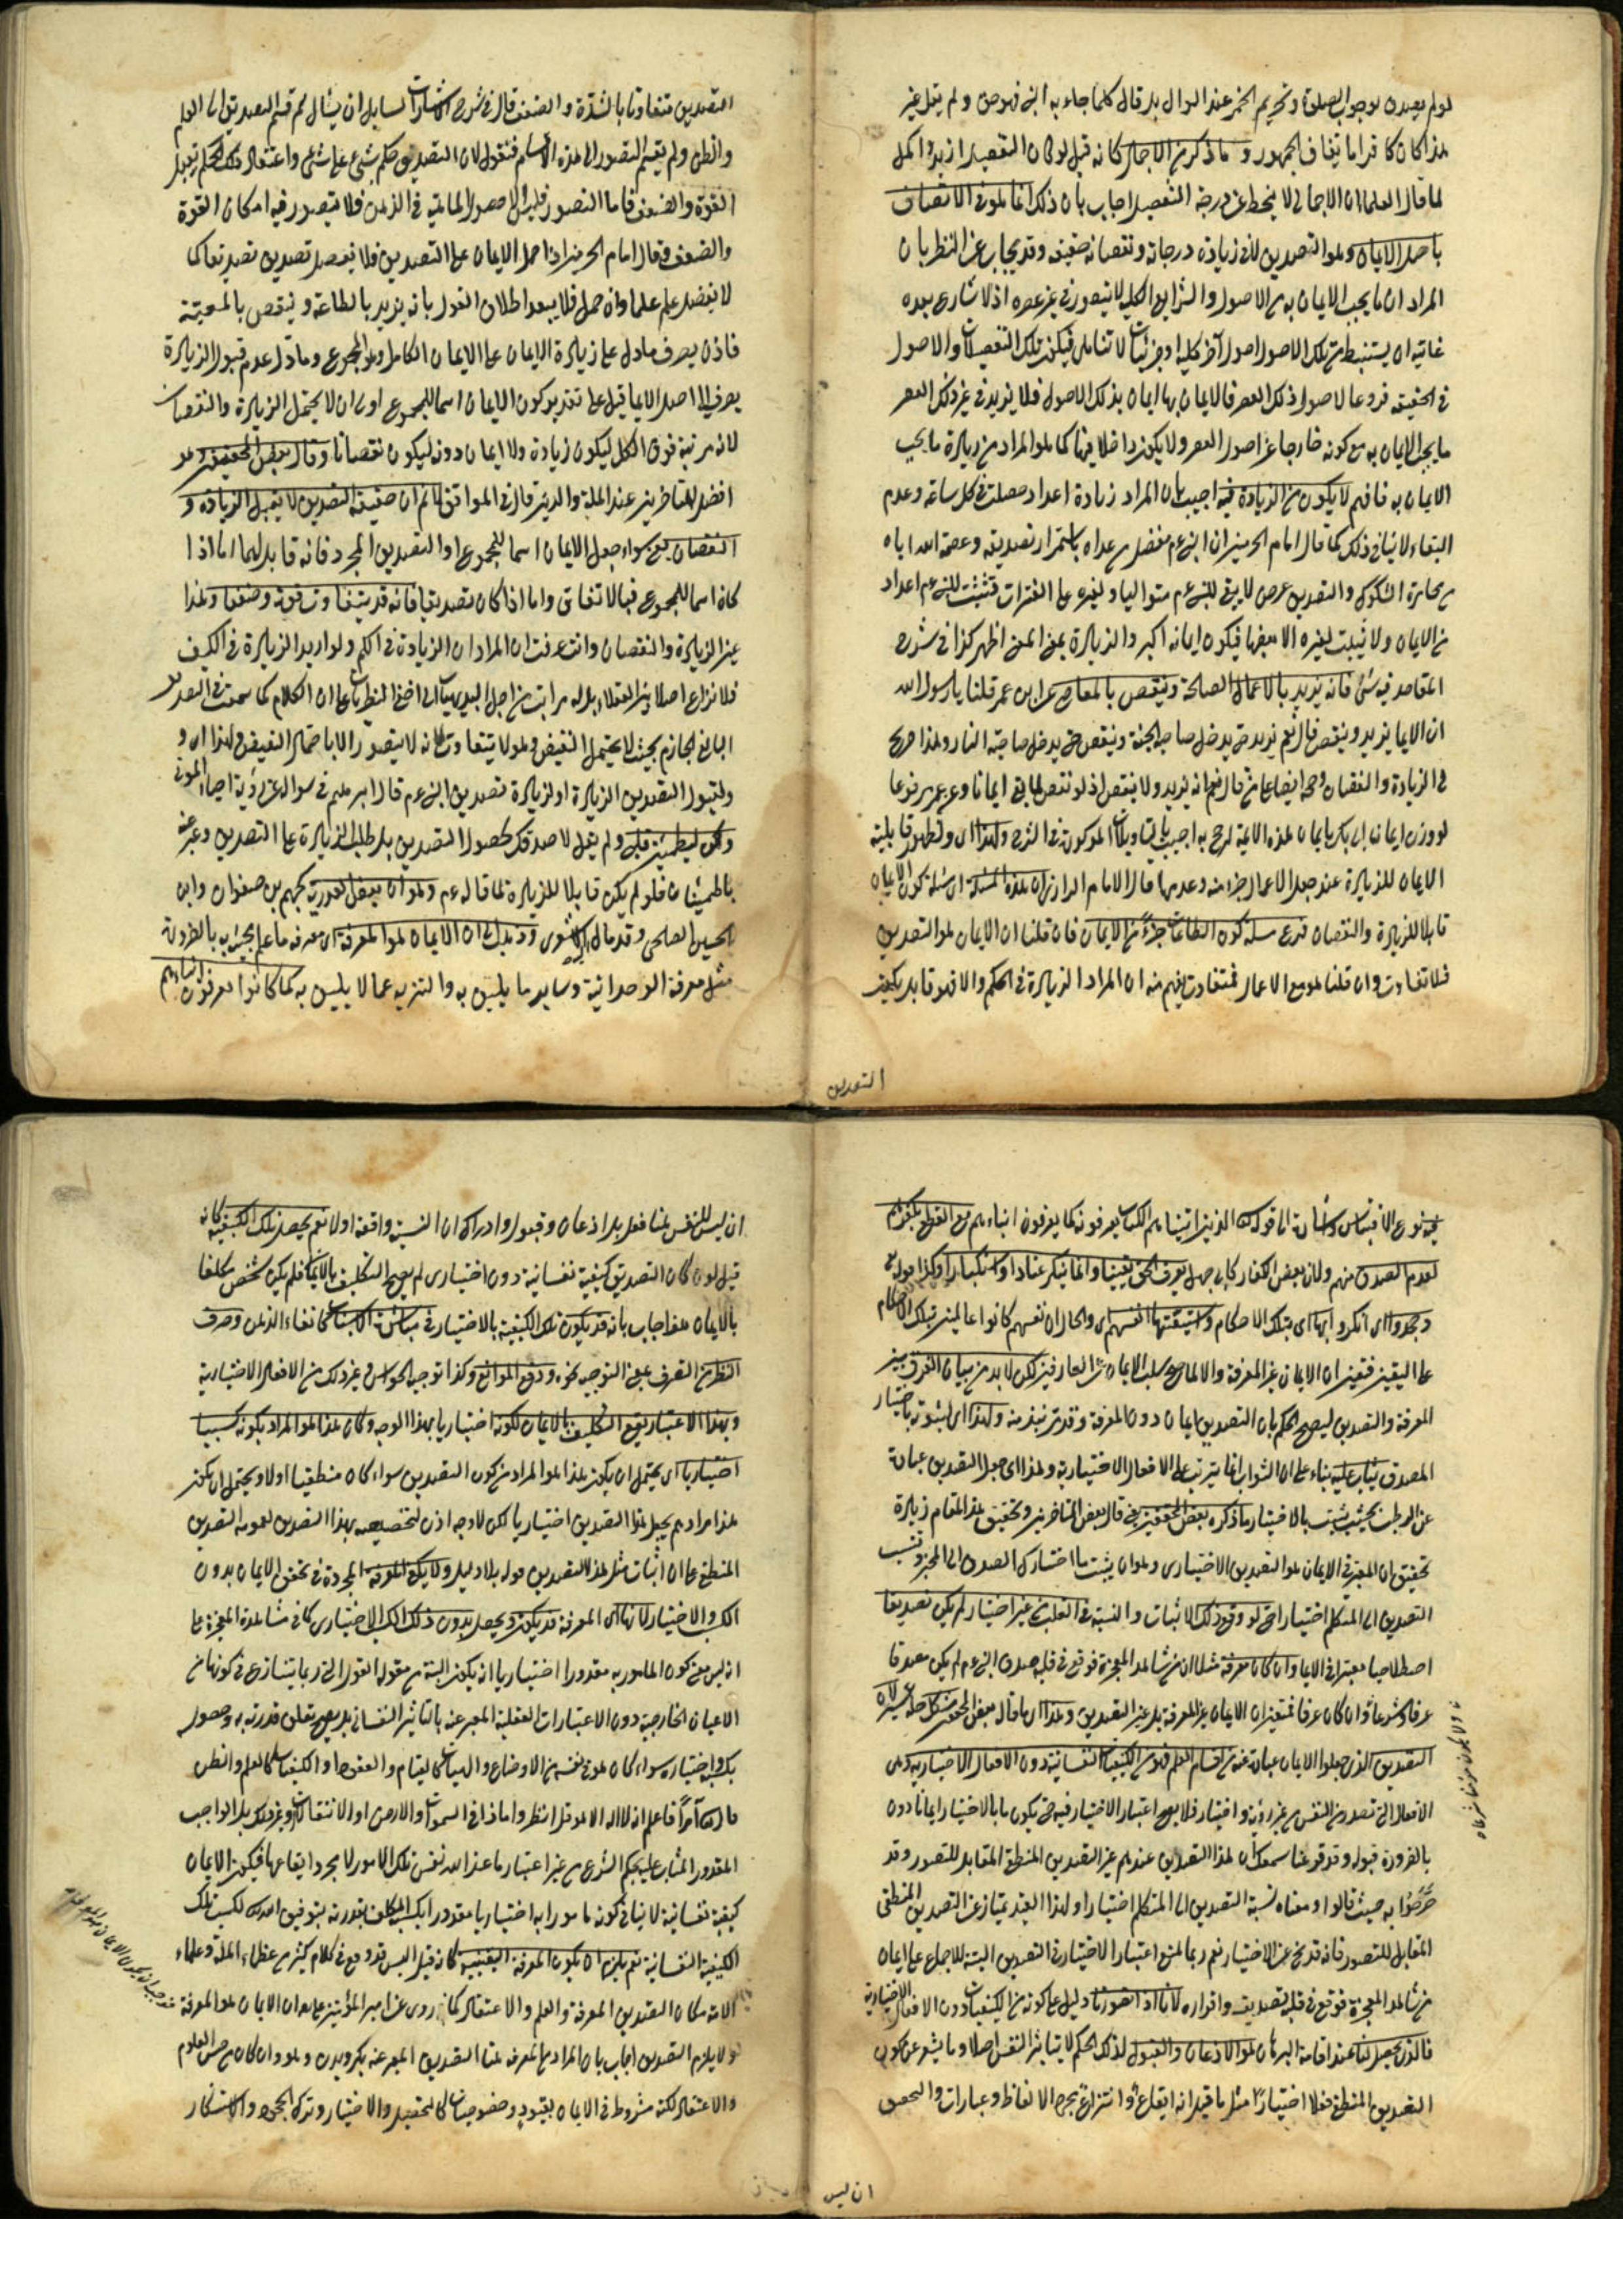 لو لم يصدق بوجوب الصلوة وتحريم الخمر عند السؤال بل قال كلما جاء به النبي فهو حق ولم يقل غير
هذا كان كافرا باتفاق الجمهور وما ذكر من الاجمال كانه قيل لو كان التفصيل ازيد واكمل
لما قال العلماء ان الاجمالي لا ينحط عن درجة التفصيل اجاب بأن ذلك انما هو في الاتصاف
باصل الايمان وهو التصديق لا في زيادة درجاته ونقصانه حقيقة وقد يجاب عن النظر بان
المراد ان ما يجب الايمان به من الاصول والشرايع الكلية لا يتصور في غير عصره اذ لا شارع بعده
غايته ان يستنبط من تلك الاصول اصول آخر كلية او جزئيات لا تتناهى فيكون تلك التفصيلات والاصول
في الحقيقة فروعا لاصول ذلك العصر فالايمان بها ايمان بذلك الاصول فلا يزيد في غير ذلك العصر
ما يجب الايمان به مع كونه خارجا عن اصول العصر ولا يكون داخلا فيها كما هو المراد من زيادة ما يجب
الايمان به فافهم لا يكون من الزيادة فيه اجيب بان المراد زيادة اعداد حصلت في كل ساعة وعدم
البقاء لا ينافي ذلك كما قال امام الحرمين ان النبي عم يفضل من عداه باستمرار تصديقه وعصمة الله اياه
من مخامرة الشكوك والتصديق عرض لا يبقى للنبي عم متواليا ولغيره على الفترات فتثبت للنبي عم اعداد
من الايمان ولا يثبت لغيره الا بعضها فيكون ايمانه اكبر والزيادة بهذا المعنى اظهر كذا في شرح
المقاصد فيه شئ فانه يزيد بالاعمال الصالحة وينقص بالمعاصي عن ابن عمر قلنا يا رسول الله
ان الايمان يزيد وينقص قال نعم يزيد حتى يدخل صاحبه الجنة وينقص حتى يدخل صاحبه النار وهذا صريح
في الزيادة والنقصان
لو وزن ايمان ابي بكر بايمان هذه الامة لرجح به
الايمان للزيادة عند جعل الاعمال جزء منه وعدمها قال الامام الرازي ان هذه المسئلة اى مسئلة كون الايمان
قابلا للزيادة والنقصان فرع مسئلة كون الطاعات جزءً من الايمان فان قلنا ان الايمان هو التصديق
فلا تفاوت وان قلنا هو مع الاعمال فمتفاوت يفهم منه ان المراد الزيادة في الكم والا فهو قابل بكيف
التصديق
التصديق متفاوتا بالشدة والضعف قال في شرح الاشارات لسايل ان يسأل لم قسم التصديق الى العلم
والظن ولم يقسم التصور الى هذه الاقسام فنقول لان التصديق حكم بشئ على شئ واعتقاد ذلك الحكم يقبل
القوة والضعف فاما التصور فليس الا حصول الماهية في الذهن فلا يتصور فيه امكان القوة
والضعف فقال امام الحرمين اذا حمل الايمان على التصديق فلا يفضل تصديق تصديقا كما
لا يفضل علم علما وان حمل فلا يبعد اطلاق القول بانه يزيد بالطاعة وينقص بالمعصية
فاذن يصرف ما دل على زيادة الايمان على الايمان الكامل وهو المجموع وما دل عدم قبول الزيادة
يصرف الى اصل الايمان قيل على تقدير كون الايمان اسما للمجموع اولى ان لا يحتمل الزيادة والنقصان
لانه مرتبة فوق الكل ليكون زيادة ولا ايمان دونه ليكون نقصانا وقال بعض المحققين وهو
افضل المتاخرين عضد الملة والدين قال في المواقف لا نم ان حقيقة التصديق لا يقبل الزيادة و
النقصان يعني سواء جعل الايمان اسما للمجموع او التصديق المجرد فانه قابل لهما اما اذا
كان اسما للمجموع فبالاتفاق واما اذا كان تصديقا فانه قد يتفاوت قوة وضعفا وهذا
عين الزيادة والنقصان وانت عرفت ان المراد ان الزيادة في الكم ولو اريد الزيادة في الكيف
فلا نزاع اصلا بين العقلاء بل له مراتب من اجل البديهيات الى اخفى النظريات على ان الكلام كما سمعت في التصديق
البالغ الجازم بحيث لا يحتمل النقيض وهو لا يتفاوت لانه لا يتصور الا باحتمال النقيض ولهذا اى و
لقبول التصديق الزيادة او لزيادة تصديق النبي عم قال ابرهيم في سوال عن رؤية احياء الموتى
ولكن ليطمئن قلبي ولم يقل لاصدقك لحصول التصديق بل طلب الزيادة على التصديق وعبر عنه
باطمئنان فلو لم يكن قابلا للزيادة لما قاله عم وهو ان بعض القدرية كجهم بن صفوان وابى
الحسين الصالحي وقد مال اليه الاشعري وذهب الى ان الايمان هو المعرفة اى معرفة ما علم مجيئه به بالضرورة
مثل معرفة الوحدانية وساير ما يليق به والتنزيه عما لا يليق به كما كانوا يعرفون ابناءهم
فيه نوع الاقتباس واشارة الى قوله تعالى الذين اتيناهم الكتاب يعرفونه كما يعرفون ابناءهم مع القطع بكفرهم
لعدم التصديق منهم ولان بعض الكفار كابي جهل يعرف الحق يقينا وانما ينكر عنادا واستكبارا وكذا قوله تع
وجحدوا اى انكروا بها اى بتلك الاحكام واستيقنتها انفسهم اى والحال ان نفسهم كانوا عالمين بتلك الاحكام
على اليقين فتعين ان الايمان غير المعرفة والا لما صح سلب الايمان من العارفين لكن لا بد من بيان الفرق بين
المعرفة والتصديق ليصح الحكم بان التصديق ايمان دون المعرفة وقد مر نبذ منه ولهذا اى لثبوته باختيار
المصدق يثاب عليه بناء على ان الثواب انما يترتب على الافعال الاختيارية ولهذا اى جعل التصديق عبارة
عن الربط بحيث يثبت بالاختيار ما ذكره بعض المحققين يعني قال بعض المتاخرين وتحقيق هذا المقام زيادة
تحقيق ان المعتبر في الايمان هو التصديق الاختياري وهو ان يثبت باختيارك الصدق الى المخبر وتنسب
التصديق الى المتكلم اختيارا حتى لو وقع ذلك الاثبات والنسبة في القلب من غير اختيار لم يكن تصديقا
اصطلاحيا معتبرا في الايمان وان كان معرفة مثلا ان من شاهد المعجزة فوقع في قلبه صدق النبي عم لم يكن مصدقا
عرفا وشرعا وان كان عرفا فتعين ان الايمان غير المعرفة بل عين التصديق وهذا اى ما قال بعض المحققين مشكل
التصديق الذي جعلوا الايمان عبارة عنه من اقسام العلم فهو من الكيفيات النفسانية دون الافعال الاختيارية وهي
الافعال التي تصدر من النفس من غير روية واختيار فلا يصح اعتبار الاختيار فيه حتى يكون ما بالاختيار ايمانا دون
بالضرورة قبوله وقد قرعنا سمعك ان هذا التصديق عندهم عين التصديق المنطقي المقابل للتصور وقد
صرحوا به حيث قالوا ومعناه نسبة التصديق الى المتكلم اختيارا ولهذا القيد يمتاز عن التصديق المنطقي
المقابل للتصور فانه قد يخ عن الاختيار نعم ربما لمنع اعتبار الاختيار في التصديق البتة للاجماع على ايمان
من شاهد المعجزة فوقع في قلبه تصديقه واقراره لانا اذا تصورنا دليل على كونه من الكيفيات دون الافعال الاختيارية
فالذي يحصل لنا عند اقامة البرهان هو الاذعان والقبول لذلك الحكم لا يتاثر النفس اصلا وما يشعر عن كون
التصديق المنطقي فعلا اختياريا مثل ما قيل انه ايقاع او انتزاع بحسب الالفاظ وعبارات والتحقيق
ان ليس
ان ليس للنفس ههنا فعل بل اذعان وقبول وادراك ان النسبة واقعة اولا نعم يحصل تلك الكيفية كانه
قيل لو كان التصديق كيفية نفسانية دون اختياري لم يصح التكليف بالايمان فلم يكن شخص مكلفا
بالايمان فعلا اجاب بانه قد يكون تلك الكيفية بالاختيار في مباشرة الاسباب كالقاء الذهن وصرف
النظر من التصرف بمعنى التوجيه نحوه ودفع الموانع وكذا توجيه الحواس وغير ذلك من الافعال الاختيارية
وبهذا الاعتبار يقع التكليف بالايمان لكونه اختياريا بهذا الوجه وكان هذا هو المراد بكونه كسبيا
اختياريا اى يحتمل ان يكون هذا هو المراد من كون التصديق سواء كان منطقيا اولا ويحتمل ان يكون
هذا مرادهم بجعل هذا التصديق اختياريا لكن لا وجه اذن لتخصيصه بهذا التصديق لعمومه التصديق
المنطقي على ان اثبات مثل هذا التصديق قوله بلا دليل ولا يكفي المعرفة المجردة في تحقق الايمان بدون
الكسب والاختيار لانها اى المعرفة قد يكون ويحصل بدون ذلك الكسب الاختياري كما في مشاهدة المعجزة على
انه ليس معنى كون المامور به مقدورا اختياريا انه يكون البتة من مقولة الفعل التي ربما يتنازع في كونها من
الاعيان الخارجية دون الاعتبارات العقلية المعبر عنه بالتاثير النفساني بل يصح تعلق قدرته به وحصوله
بكسبه واختياره سواء كان هو في نفسه من الاوضاع والهيئات كالقيام والقعود او الكيفيات كالعلم والظن
قال الله آمراً فاعلم انه لا اله الا هو قل انظروا ماذا في السموات والارض او الانتقالات وغير ذلك بل الواجب
المقدور المثاب عليه بحكم الشرع من غير اعتبار ما عند الله نفس تلك الامور لا مجرد ايقاعها فيكون الايمان
كيفية نفسانية لا ينافي كونه مامورا به اختياريا مقدورا يكسب المكلف بقدرته بتوفيق الله تعالى لكسب تلك
الكيفية النفسانية نعم يلزم ان يكون المعرفة اليقينية كانه قيل اليس قد وقع في كلام كثير من عظماء الملة وعلماء
الامة مكان التصديق المعرفة والعلم والاعتقاد كما روى عن امير المؤمنين على ان الايمان هو المعرفة
ولا يلزم التصديق اجاب بان المراد من المعرفة هنا التصديق المعبر عنه بكرويدن وهو وان كان من جنس العلوم
والاعتقاد لكنه مشروط في الايمان بقيود وخصوصيات كالتحصيل والاختيار وترك الجحود والاستكبار